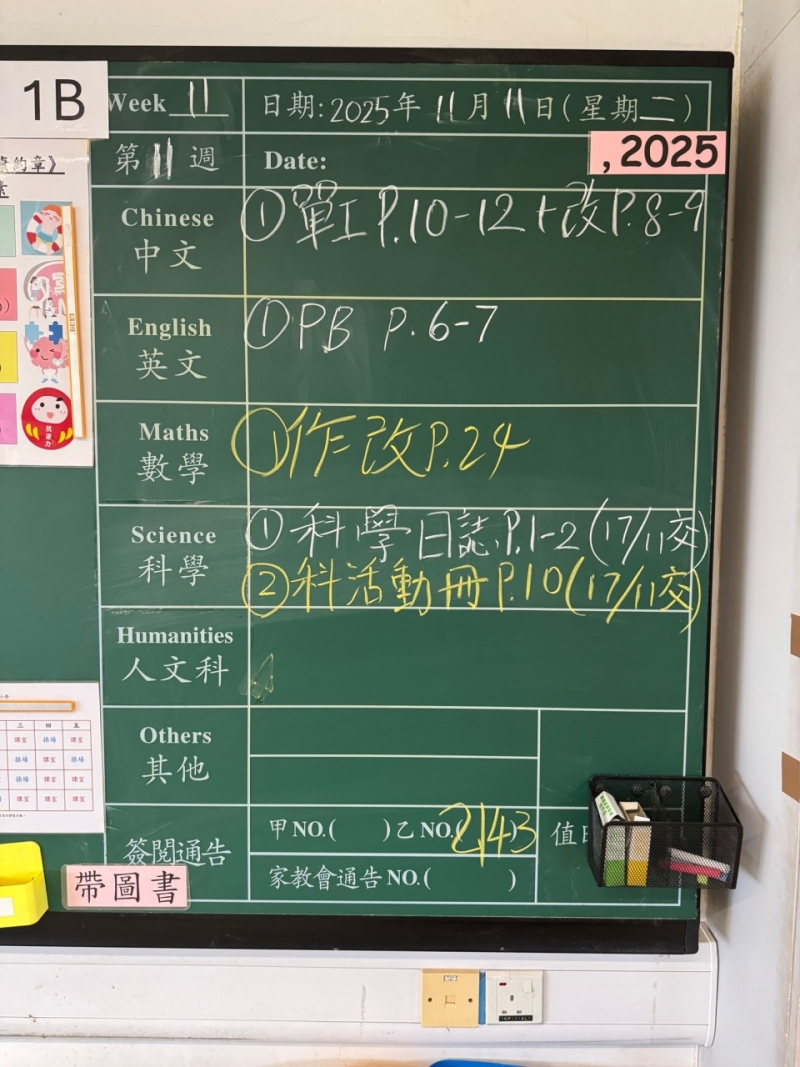 1B
Week 11
日期: 2025年 11月 11日(星期二)
第 11 週
Date:
, 2025
Chinese
中文
① 單工 P.10-12 + 改 P.8-9
English
英文
① PB P.6-7
Maths
數學
① 作改 P.24
Science
科學
① 科學日誌 P.1-2 (17/11交)
② 科活動冊 P.10 (17/11交)
Humanities
人文科
Others
其他
簽閱通告
甲 NO.( ) 乙 NO.( 2143 )
值
家教會通告 NO.( )
帶圖書
三 四 五